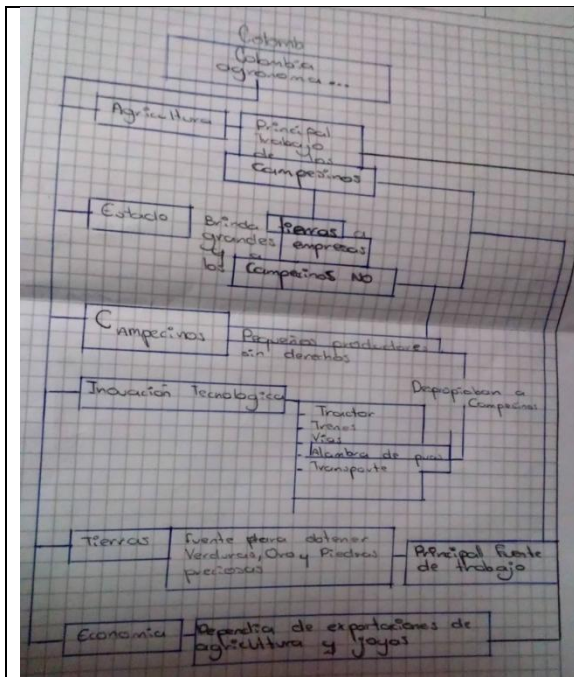 Colomb
Colombia
agronoma...
Agricultura
Principal
trabajo
de los
Campesinos
Estado
Brinda tierras a
grandes empresas
y a
los Campecinos NO
Campecinos
Pequeños productores
sin derechos
Inovación Tecnologica
- Tractor
- Trenes
- Vias
- Alambra de puas
- Transporte
Despropiaban a
Campecinos
Tierras
Fuente para obtener
Verduras, Oro y Piedras
preciosas
Principal fuente
de trabajo
Economia
Dependia de exportaciones de
agricultura y joyas